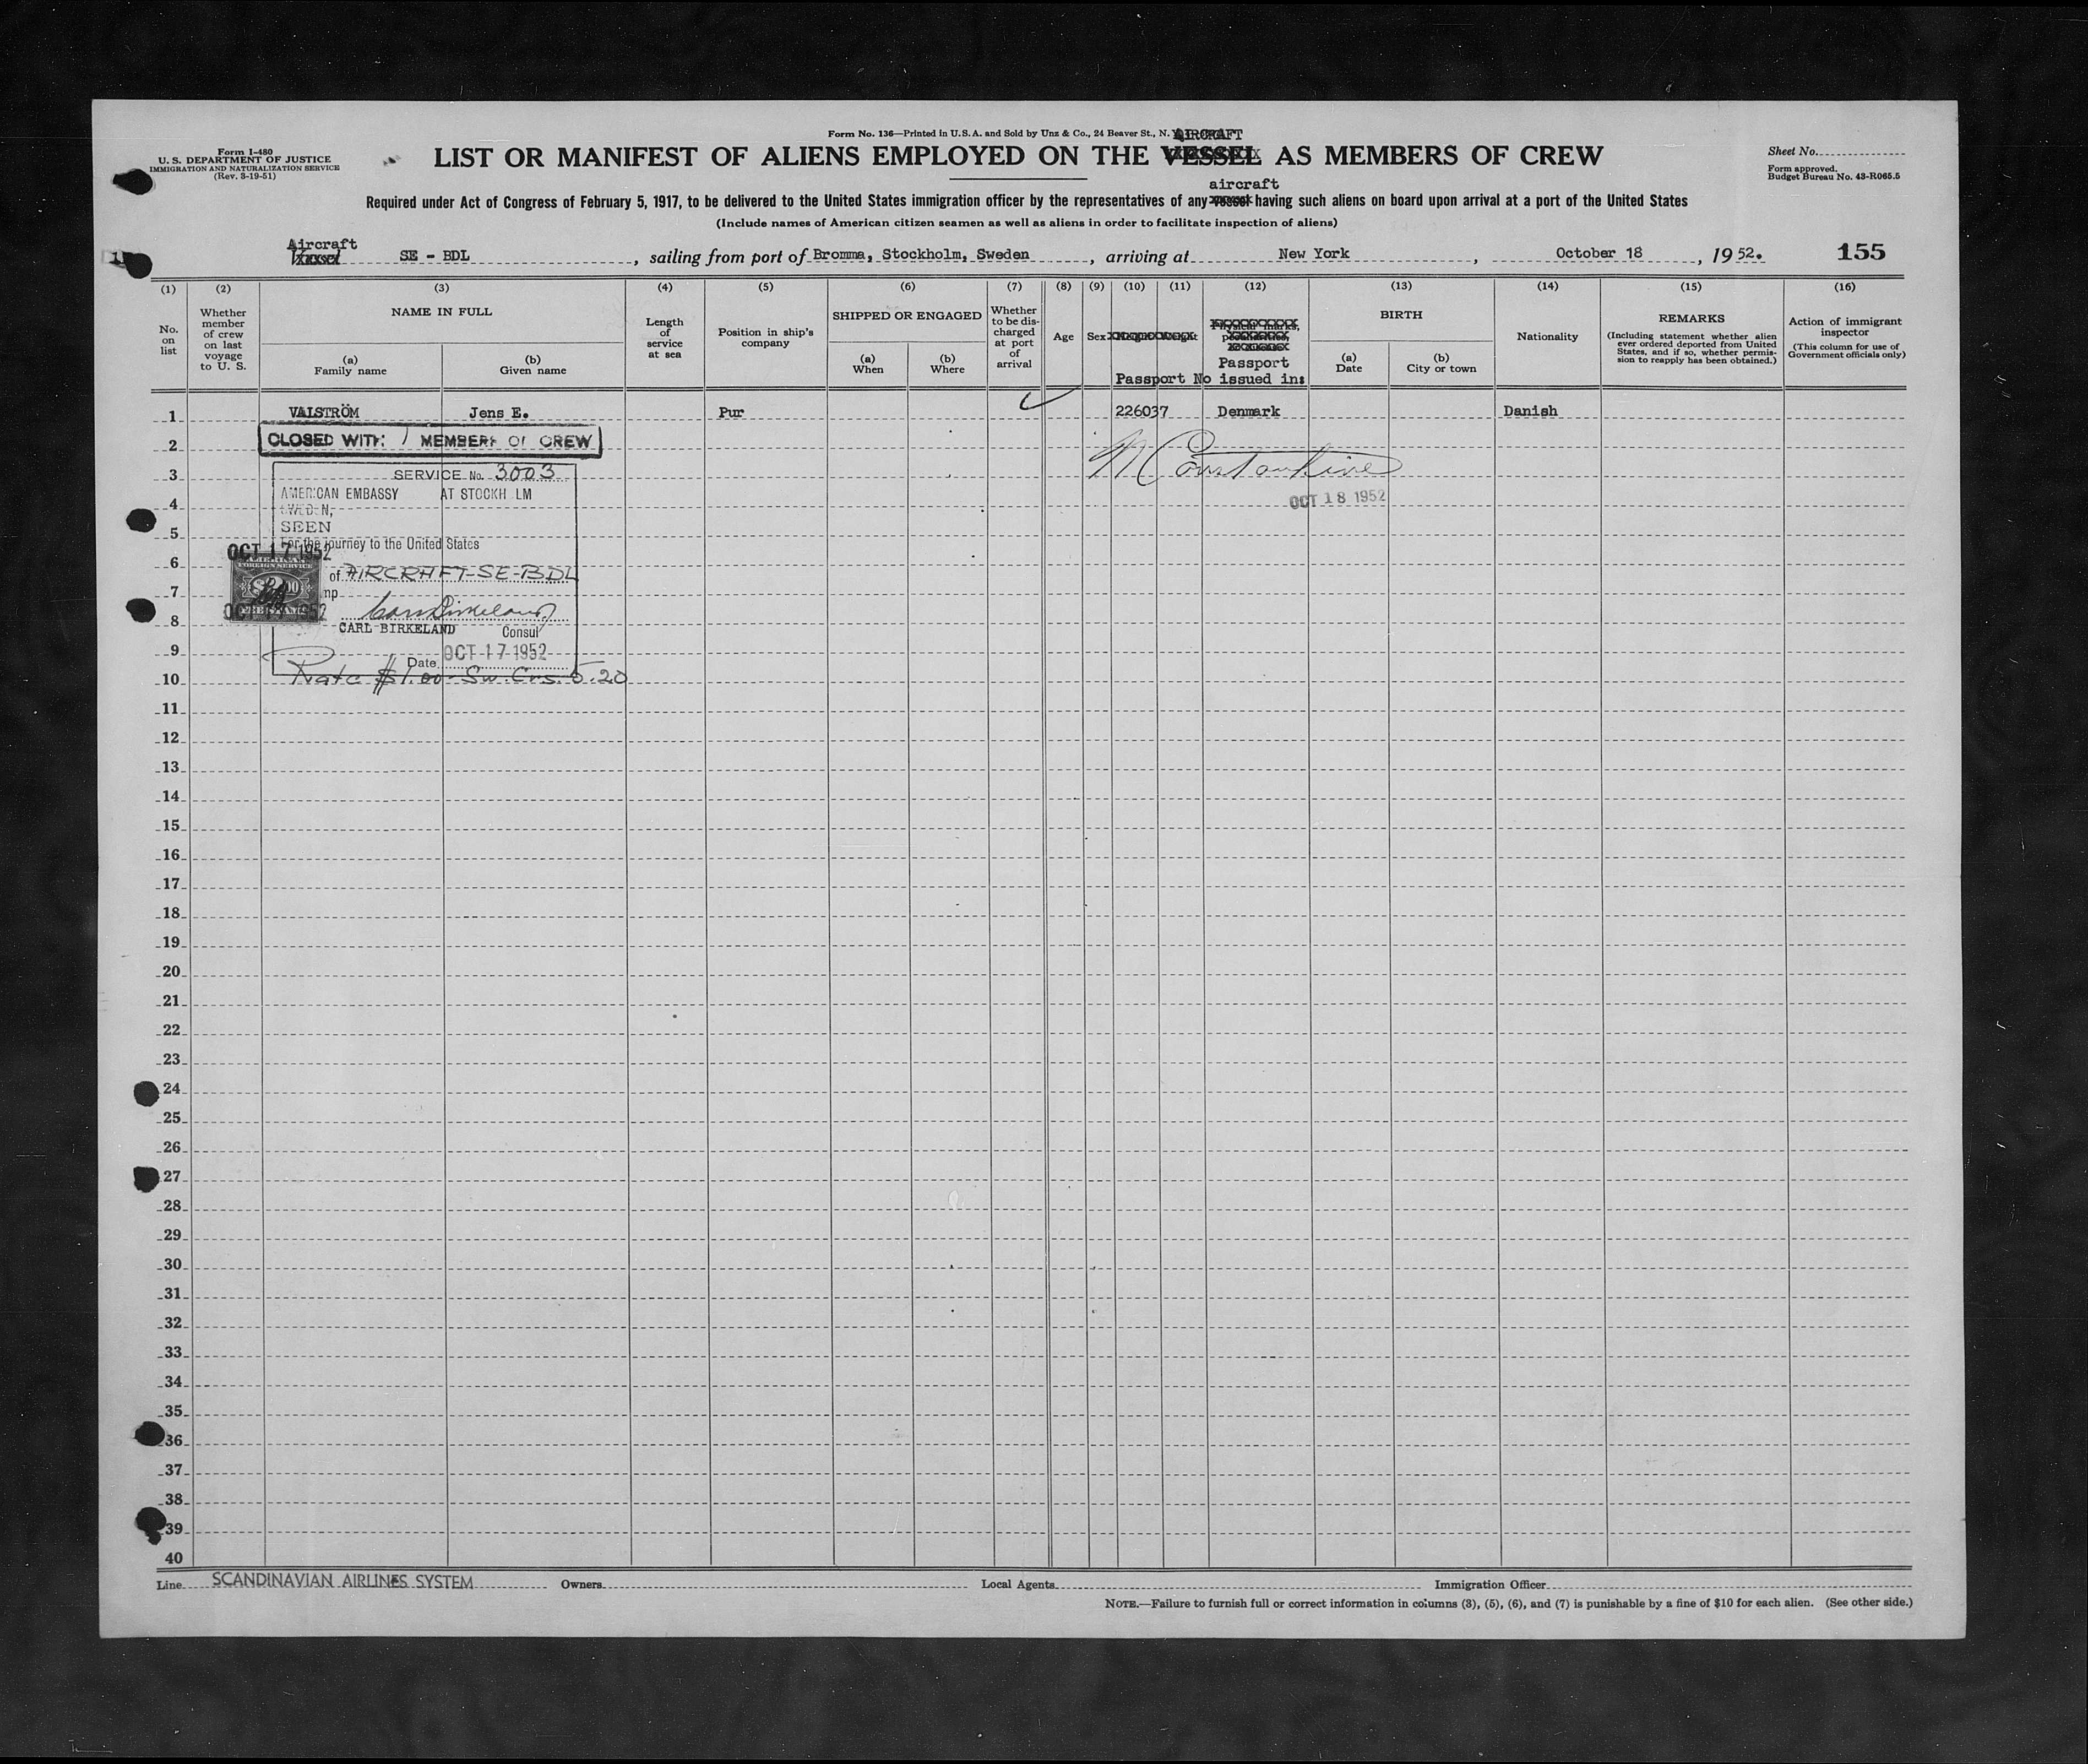 Form No. 136—Printed in U.S.A. and Sold by Unz & Co., 24 Beaver St., N.Y.
AIRCRAFT
Form I-480
U. S. DEPARTMENT OF JUSTICE
IMMIGRATION AND NATURALIZATION SERVICE
(Rev. 3-19-51)
LIST OR MANIFEST OF ALIENS EMPLOYED ON THE VESSEL AS MEMBERS OF CREW
Sheet No.
Form approved.
Budget Bureau No. 43-R065.5
aircraft
Required under Act of Congress of February 5, 1917, to be delivered to the United States immigration officer by the representatives of any vessel having such aliens on board upon arrival at a port of the United States
(Include names of American citizen seamen as well as aliens in order to facilitate inspection of aliens)
Aircraft
Vessel SE - BDL, sailing from port of Bromma, Stockholm, Sweden, arriving at New York, October 18, 1952. 155
(1) (2) (3) (4) (5) (6) (7) (8) (9) (10) (11) (12) (13) (14) (15) (16)
No. on list
Whether member of crew on last voyage to U. S.
NAME IN FULL
(a) Family name
(b) Given name
Length of service at sea
Position in ship's company
SHIPPED OR ENGAGED
(a) When
(b) Where
Whether to be discharged at port of arrival
Age
Sex
Height
Weight
Physical marks, peculiarities,
Passport
Passport No issued in:
BIRTH
(a) Date
(b) City or town
Nationality
REMARKS
(Including statement whether alien ever ordered deported from United States, and if so, whether permission to reapply has been obtained.)
Action of immigrant inspector
(This column for use of Government officials only)
1 VALSTRÖM Jens E. Pur 226037 Denmark Danish
CLOSED WITH 1 MEMBERS OF CREW
2
M Constantine
SERVICE No. 3003
3
AMERICAN EMBASSY AT STOCKH LM
OCT 18 1952
4
SWEDEN,
SEEN
5
For the journey to the United States
OCT 17 1952
6
AMERICAN
FOREIGN SERVICE
of AIRCRAFT-SE-BDL
7
FEE STAMP
8
CARL BIRKELAND Consul
9
Date OCT 17 1952
10
Rate $1.00 Sw. Crs. 5.20
11
12
13
14
15
16
17
18
19
20
21
22
23
24
25
26
27
28
29
30
31
32
33
34
35
36
37
38
39
40
Line SCANDINAVIAN AIRLINES SYSTEM Owners Local Agents Immigration Officer
NOTE.—Failure to furnish full or correct information in columns (3), (5), (6), and (7) is punishable by a fine of $10 for each alien. (See other side.)